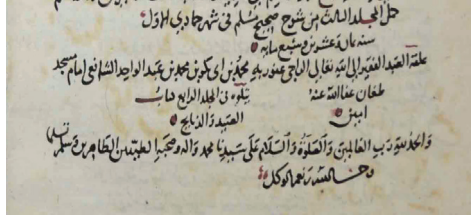 كمل المجلد الثالث من شرح صحيح مسلم في شهر جمادى الاول
سنة ثمان وعشرين وسبع مائة
علقه العبد الفقير الى الله تعالى الراجي عفو ربه محمد بن ابي بكر بن محمد بن عبد الواحد الشافعي امام مسجد
طغان عفا الله عنه يتلوه في المجلد الرابع كتاب
امين الصيد والذبايح
والحمد لله رب العالمين والصلوة والسلام على سيدنا محمد واله وصحبه الطيبين الطاهرين وسلم تسليما
ونعم الوكيل